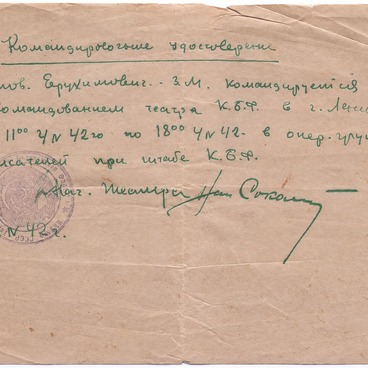 Командировочное удостоверени
тов. Ерухимович З.М. командируется
командованием театра К.Б.Ф. в г. Лени
11⁰⁰ 4/IV 42го по 18⁰⁰ 4/IV 42 в опер. групп
писателей при штабе К.Б.Ф.
Нач. Театра
IV 42 г.
СССР